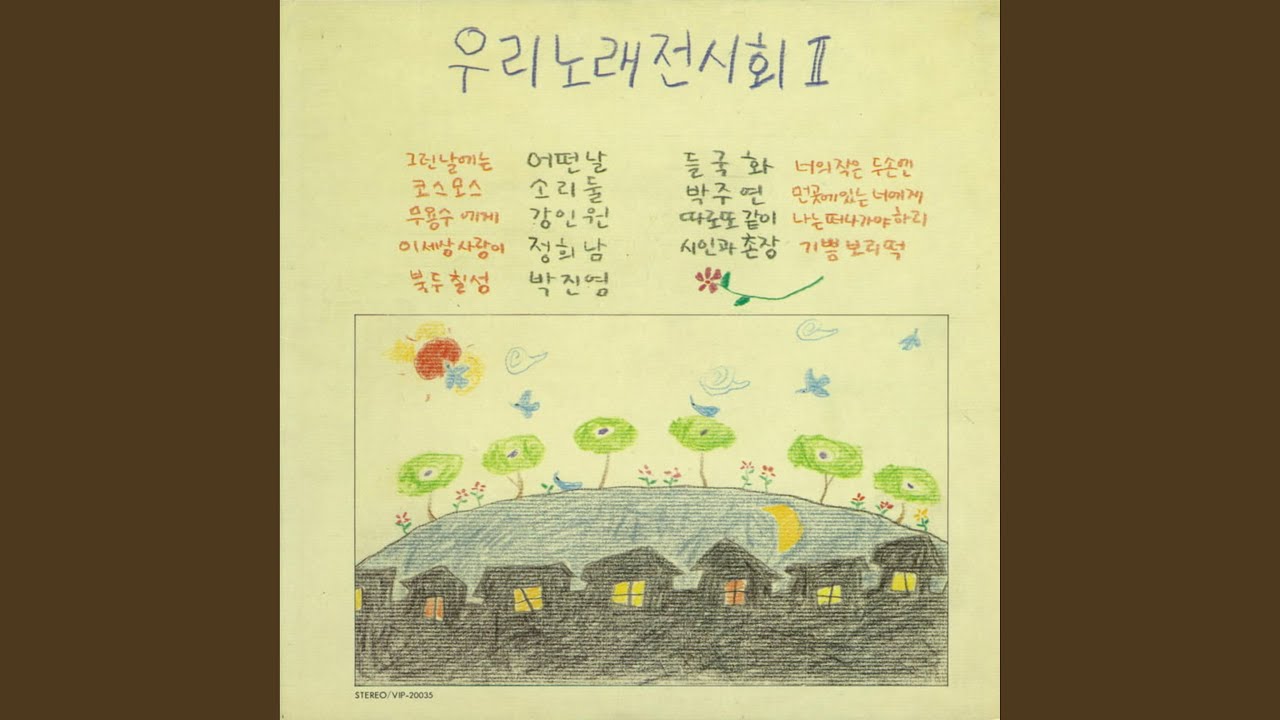 우리노래전시회 Ⅱ
그런날에는 어떤날
코스모스 소리둘
무용수에게 강인원
이세상사랑이 정희남
북두칠성 박진영
들국화 너의작은 두손엔
박주연 먼곳에있는너에게
따로또같이 나는떠나가야하리
시인과촌장 기쁨보리떡
STEREO/VIP-20035